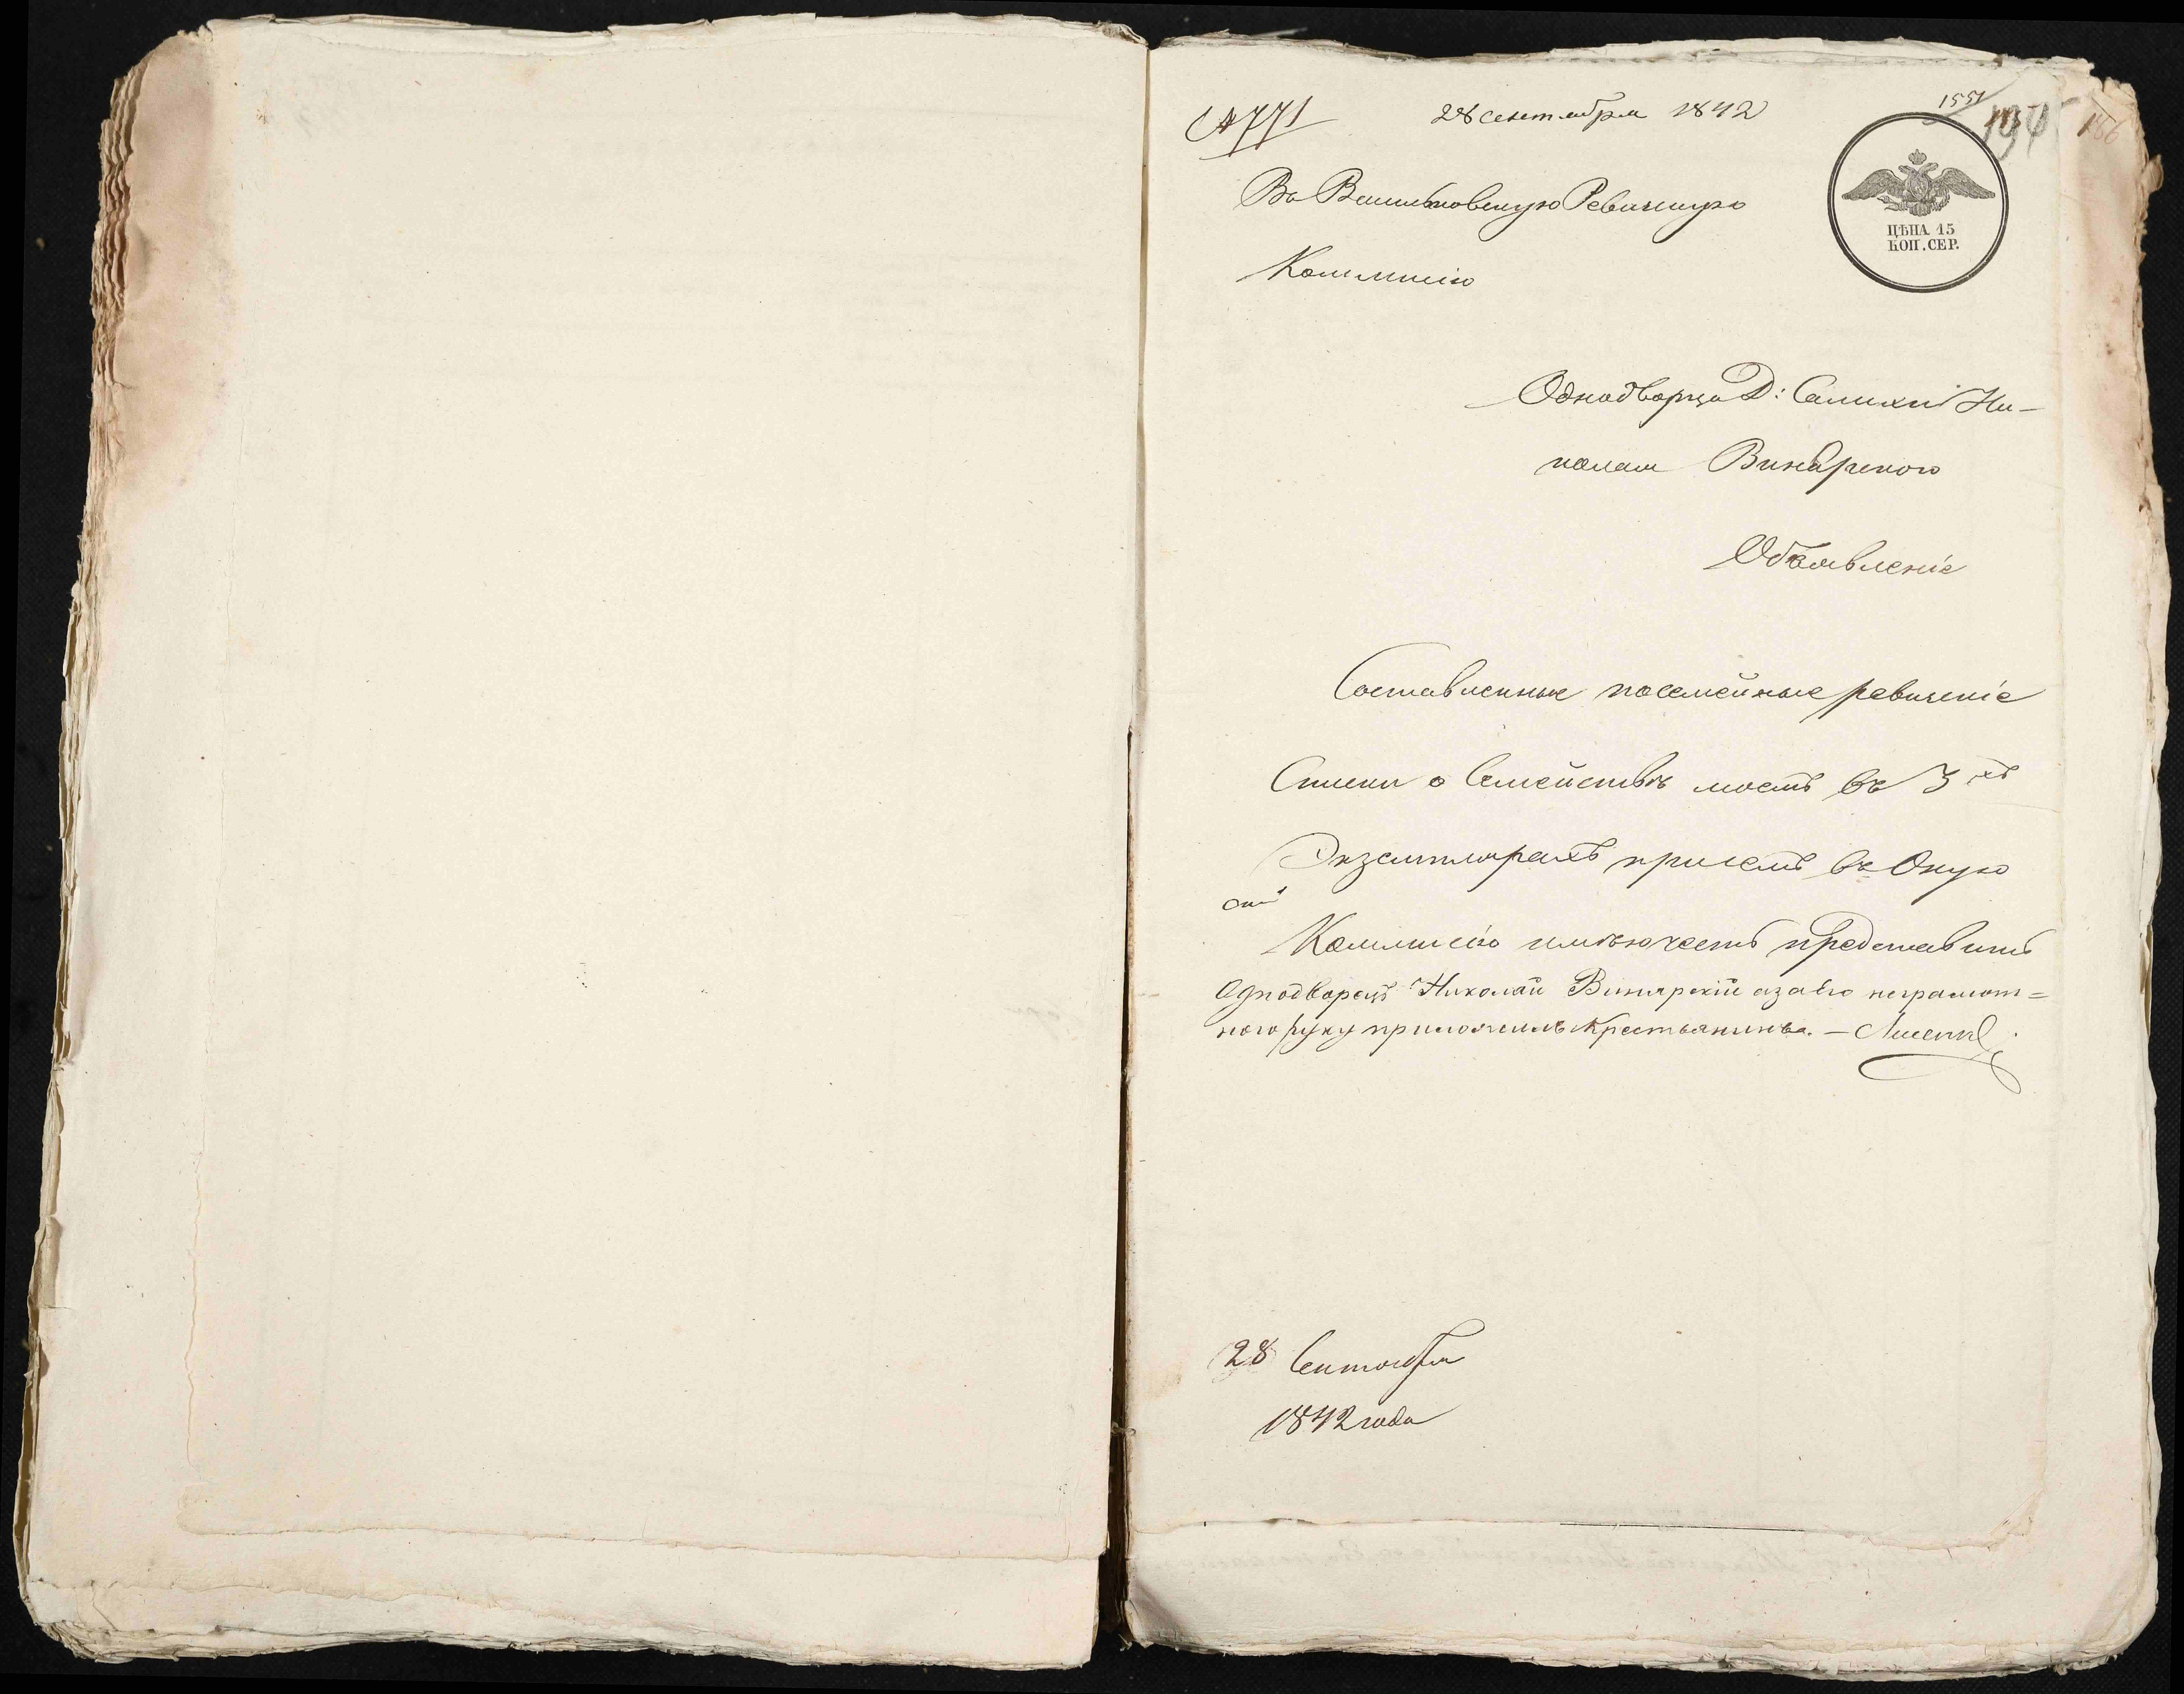 № 771 28 Сентября 1842
1551
196
186
ЦѢНА 15
КОП. СЕР.
Въ Ревизскую
Коммисію
Однодворца Д: Салихи Ни-
колая Винярского
Объявленіе
Составленные посемейные ревизскіе
Списки о Семействѣ моемъ въ 3хъ
Экземплярахъ присемъ въ Оную
Коммисію имѣю честь представить
Однодворецъ Николай Винярскій азаего неграмот=
ного руку приложилъ Крестьянинъ. —
28 Сентября
1842 года